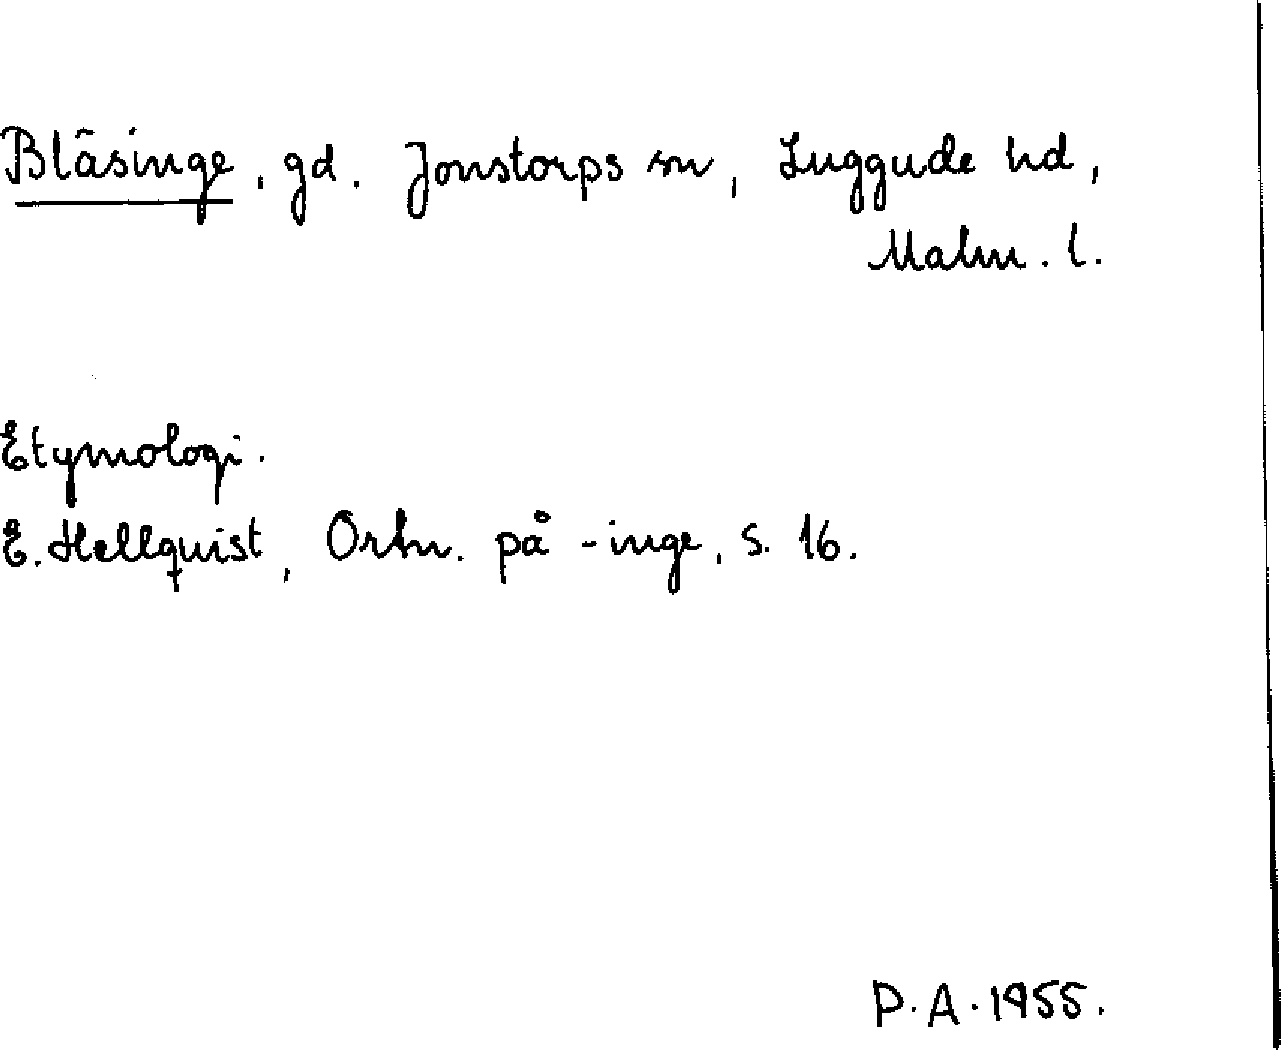 Bläsinge, gd. Jonstorps sn, Luggude hd,
Malm. l.
Etymologi.
E. Hellquist, Ortn. på -inge, s. 16.
P.A. 1955.